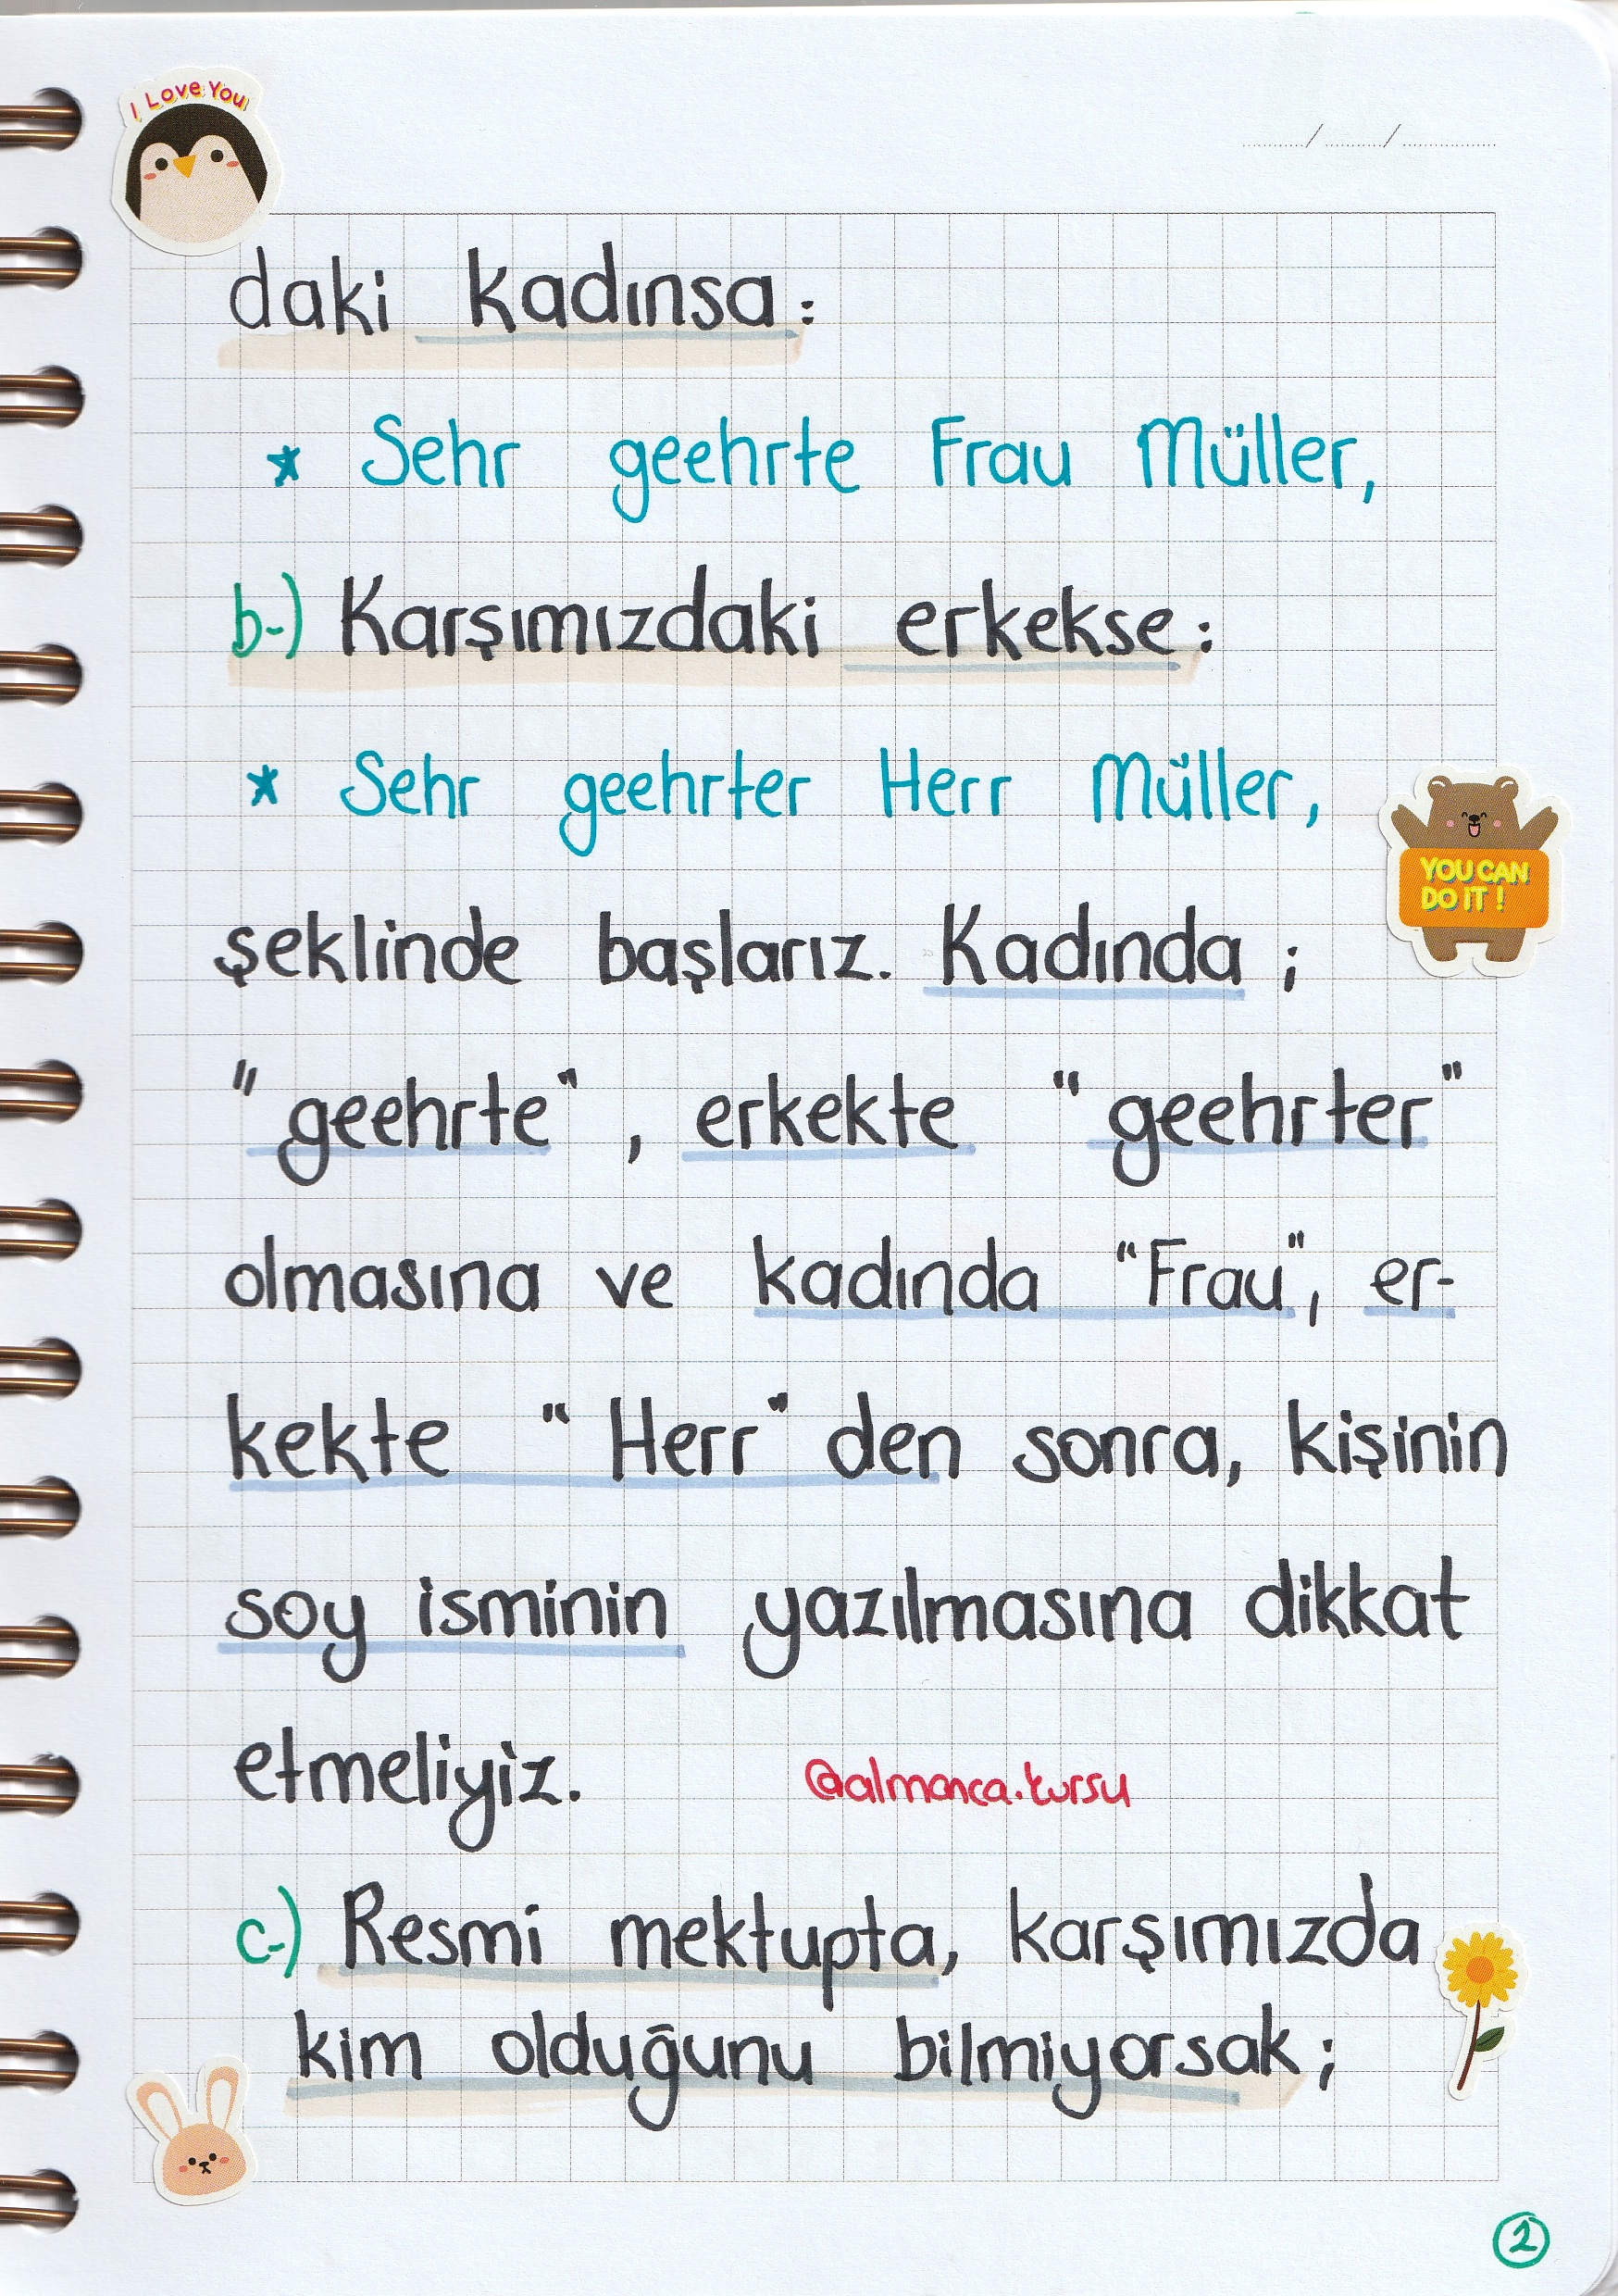 I Love You
daki kadınsa:
* Sehr geehrte Frau Müller,
b-) Karşımızdaki erkekse:
* Sehr geehrter Herr Müller,
YOU CAN
DO IT!
şeklinde başlarız. Kadında;
"geehrte", erkekte "geehrter"
olmasına ve kadında "Frau", er-
kekte "Herr" den sonra, kişinin
soy isminin yazılmasına dikkat
etmeliyiz. @almanca.kursu
c-) Resmi mektupta, karşımızda
kim olduğunu bilmiyorsak;
2